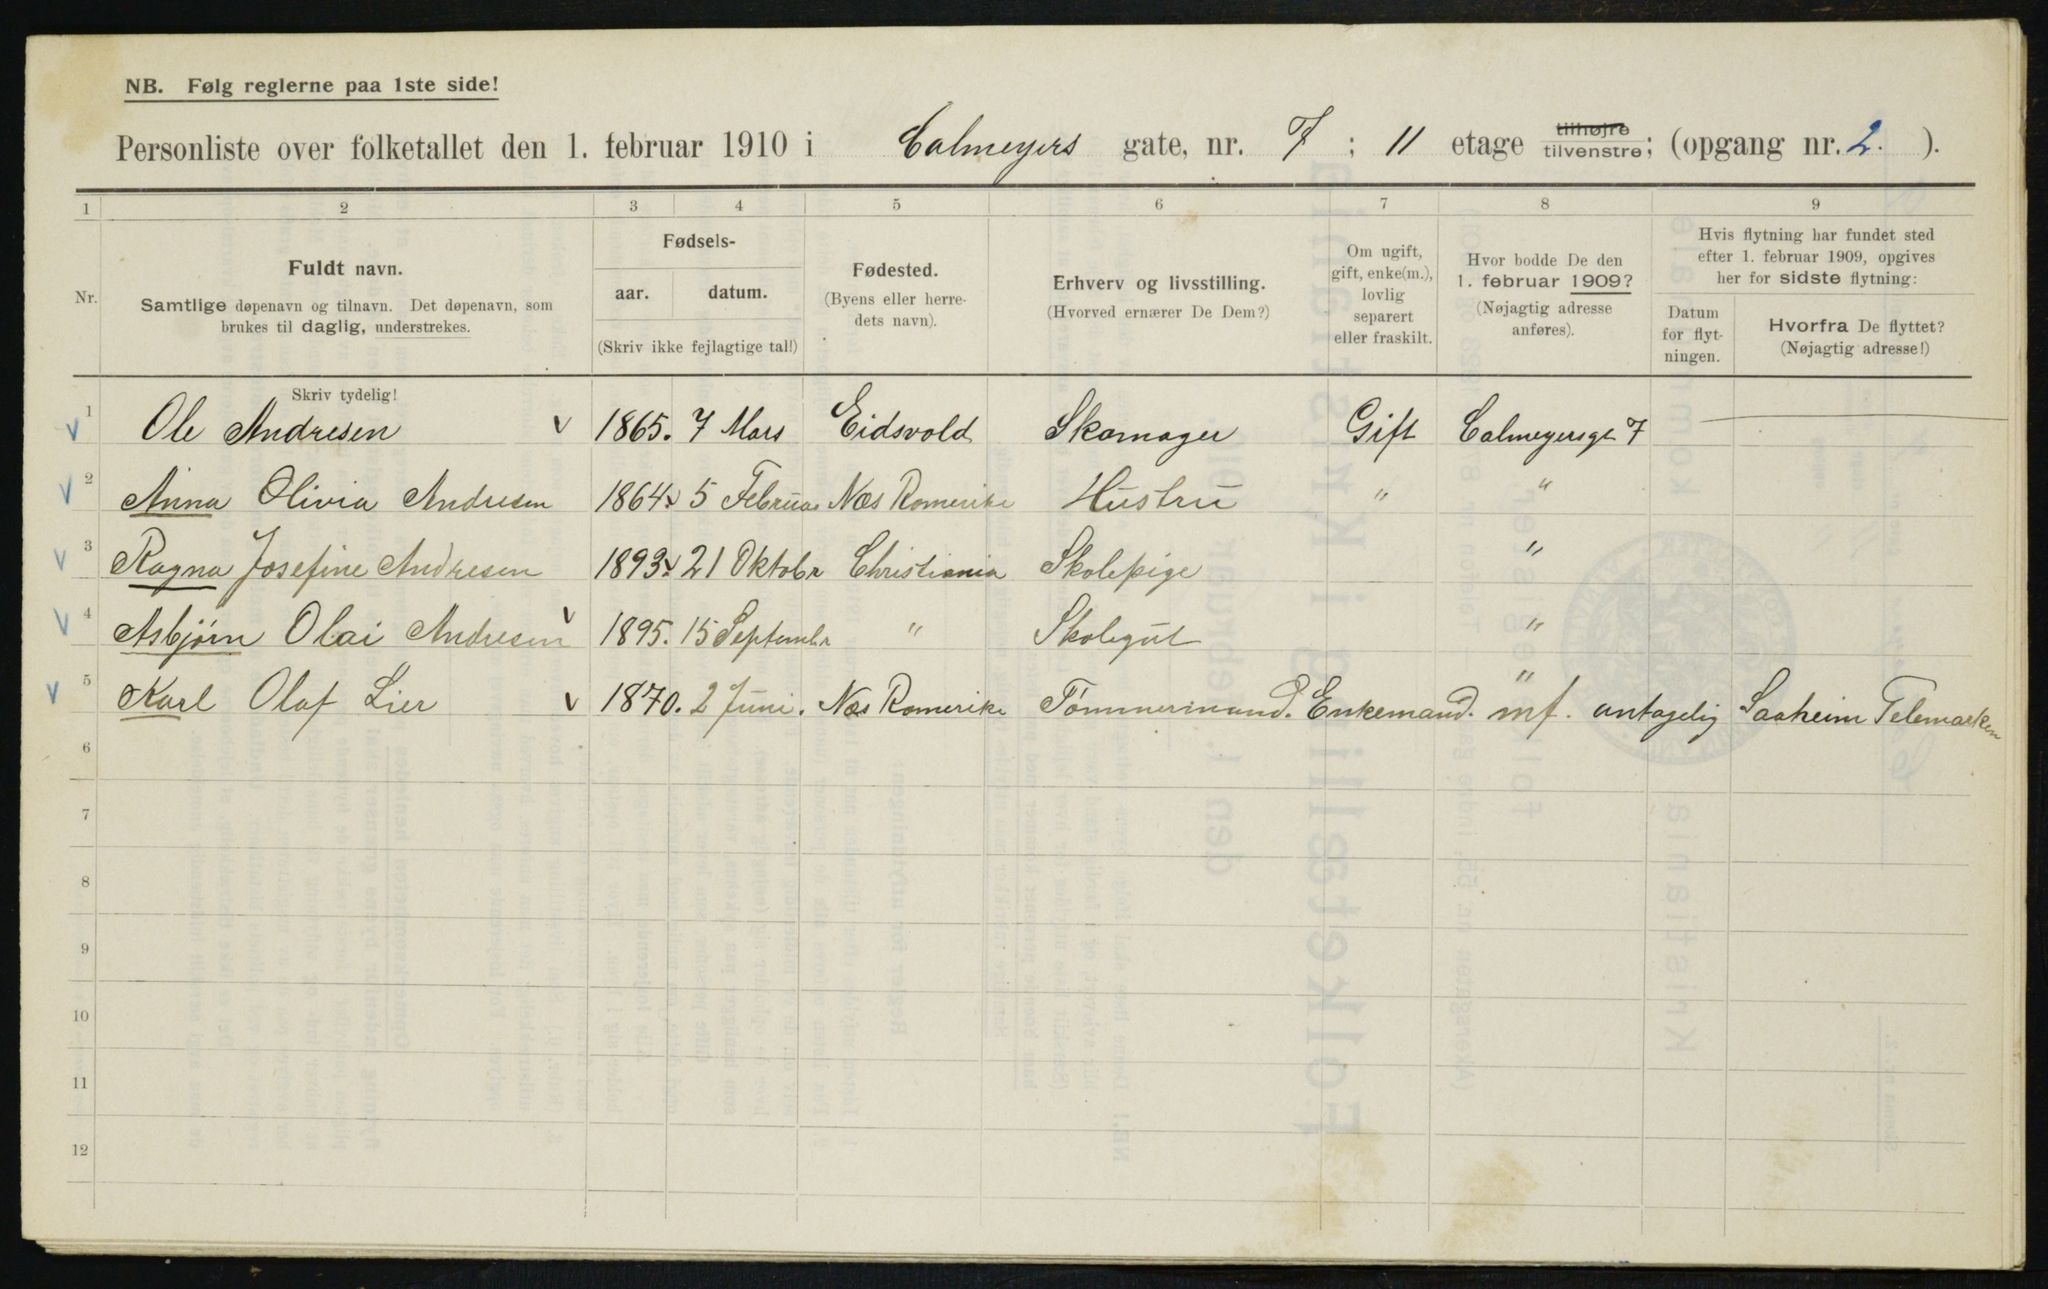 NB. Følg reglerne paa 1ste side!
Personliste over folketallet den 1. februar 1910 i Calmeyers gate, nr. 7; 11 etage tilhøjre tilvenstre; (opgang nr. 2. ).
1 2 3 4 5 6 7 8 9
Nr.
Fuldt navn.
Samtlige døpenavn og tilnavn. Det døpenavn, som
brukes til daglig, understrekes.
Fødsels-
aar. datum.
(Skriv ikke fejlagtige tal!)
Fødested.
(Byens eller herre-
dets navn).
Erhverv og livsstilling.
(Hvorved ernærer De Dem?)
Om ugift,
gift, enke(m.),
lovlig
separert
eller fraskilt.
Hvor bodde De den
1. februar 1909?
(Nøjagtig adresse
anføres).
Hvis flytning har fundet sted
efter 1. februar 1909, opgives
her for sidste flytning:
Datum
for flyt-
ningen.
Hvorfra De flyttet?
(Nøjagtig adresse!)
Skriv tydelig!
1 Ole Andresen v 1865. 7 Mars Eidsvold Skomager Gift Calmeyersgt 7
2 Anna Olivia Andresen 1864 5 Februar Næs Romerike Hustru " "
3 Ragna Josefine Andresen 1893 21 Oktobr Christiania Skolepige "
4 Asbjørn Olai Andresen v 1895. 15 Septembr " Skolegut "
5 Karl Olaf Lier v 1870. 2 Juni. Næs Romerike Tømmermand. Enkemand. " mf. antagelig Saaheim Telemarken
6
7
8
9
10
11
12